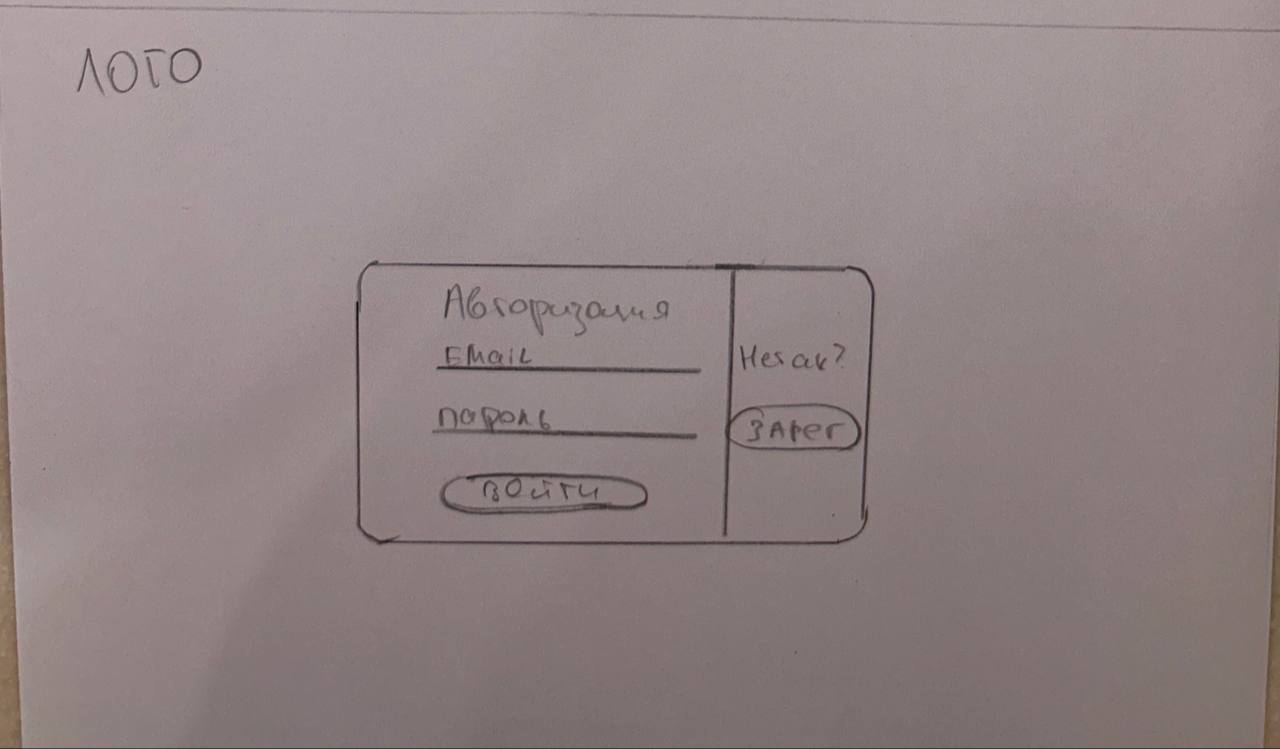 ЛОГО
Авторизация
EMail
пароль
ВОйТи
Нет ак?
ЗАрег